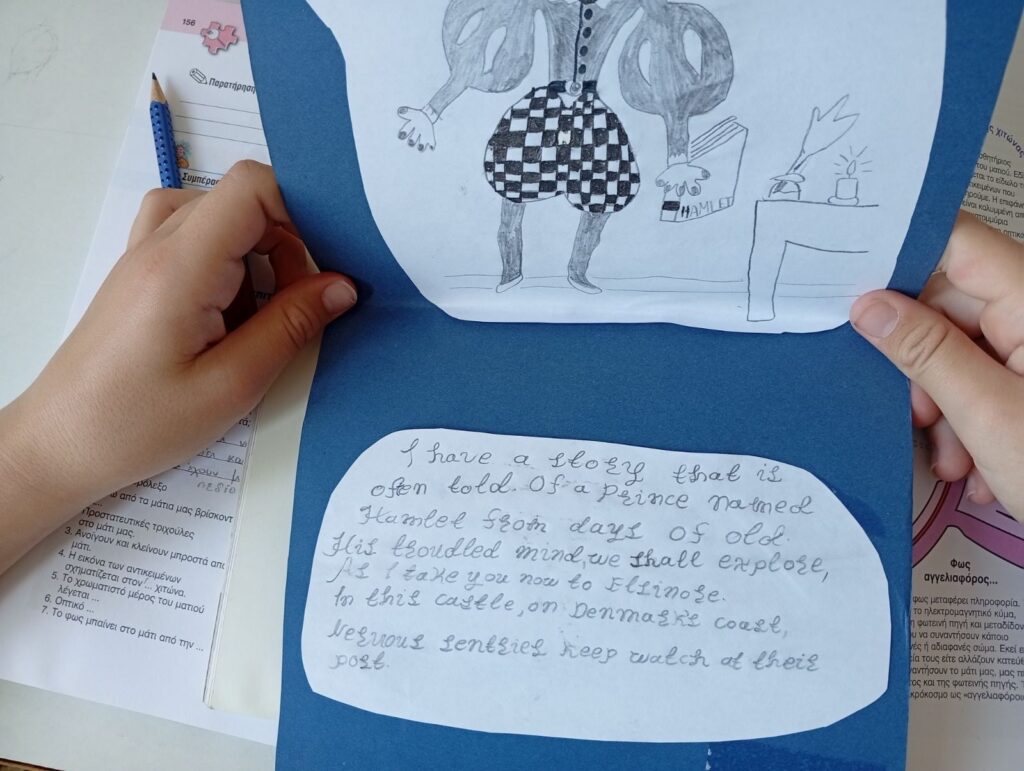 156
Παρατήρηση
Συμπέρασ
HAMLET
I have a story that is
often told. Of a Prince named
Hamlet from days of old.
His troudled mind, we shall explore,
As I take you now to Ellinore.
In this castle, on Denmark's coast,
Nervous sentries keep watch at their
post.
από τα μάτια μας βρίσκοντ
Προστατευτικές τριχούλες
στο μάτι μας.
3. Ανοίγουν και κλείνουν μπροστά από
μάτι.
4. Η εικόνα των αντικειμένων
σχηματίζεται στον ... χιτώνα.
5. Το χρωματιστό μέρος του ματιού
λέγεται ...
6. Οπτικό ...
7. Το φως μπαίνει στο μάτι από την ...
ς χιτώνας
του ματιού.
είναι καλυμμένη από
Φως
αγγελιαφόρος...
φως μεταφέρει πληροφορία.
το ηλεκτρομαγνητικό κύμα,
φωτεινή πηγή και μεταδίδον
υ να συναντήσουν κάποιο
ές ή αδιαφανές σώμα. Εκεί
τεία τους είτε αλλάζουν κατεύθ
ναντήσουν το μάτι μας, μας
τος και της φωτεινής πηγής.
κρόκοσμο ως «αγγελιαφόροι